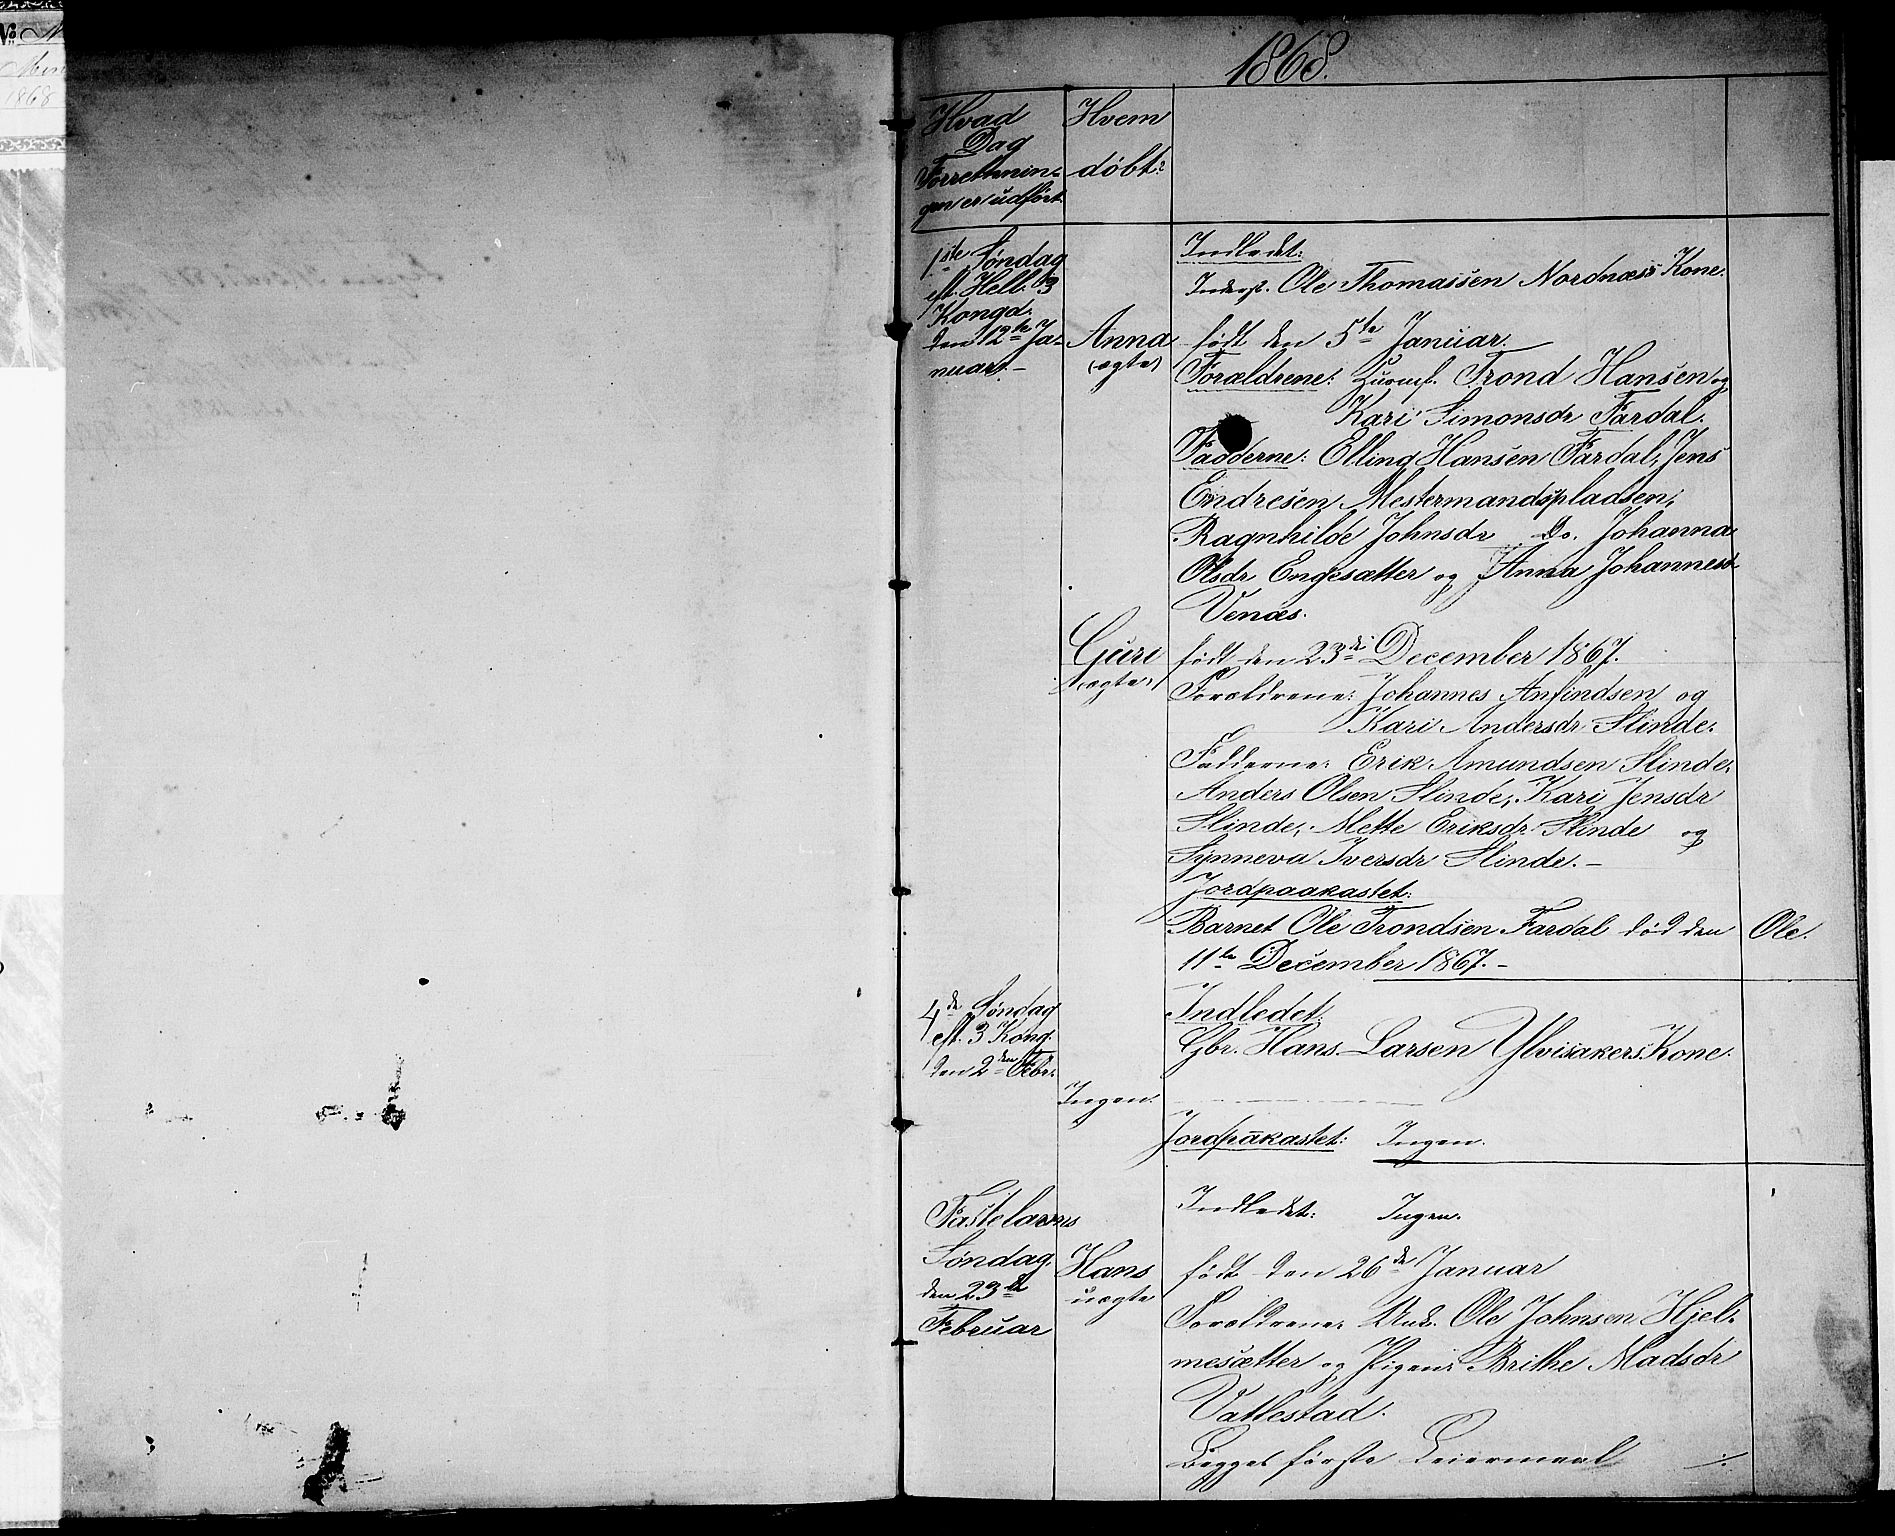 1868.
Hvad
Dag
Forretnin=
gen er udført
Hvem
døbt:
1ste Søndag
eft. Hell. 3
Kongd.
den 12te Ja-
nuar.-
Indledet:
Inderst. Ole Thomassen Nordnæss Kone.
Anna
(ægte)
født den 5te Januar.
Forældrene: Husmd. Trond Hansen og
Kari Simonsdr Fardal.
Fadderne: Elling Hansen Fardal, Jens
Endresen Mestermandspladsen,
Ragnhilde Johnsdr Do. Johanna
Olsdr Engesætter og Anna Johannesd
Venæs.
Guri
(ægte)
født den 23de December 1867.
Forældrene: Johannes Anfindsen og
Kari Andersdr Slinde.
Fadderne: Erik Amundsen Slinde,
Anders Olsen Slinde, Kari Jensdr
Slinde, Mette Eriksdr Slinde og
Synneva Iversdr Slinde.-
Jordpaakastet:
Barnet Ole Trondsen Fardal død den
11te December 1867.-
Ole.
4de Søndag
eft. 3 Kong.
den 2den Febr.
Indledet:
Gbr. Hans Larsen Ylvisakers Kone.
Ingen.
Jordpåkastet: Ingen.
Fastelavns
Søndag
den 23de
Februar
Indledet: Ingen.
Hans
uægte
født den 26de Januar
Forældrene: Unk. Ole Johnsen Hjel-
mesætter og Pigen Brithe Madsdr
Vallestad.
Begges første Leiermaal ./.